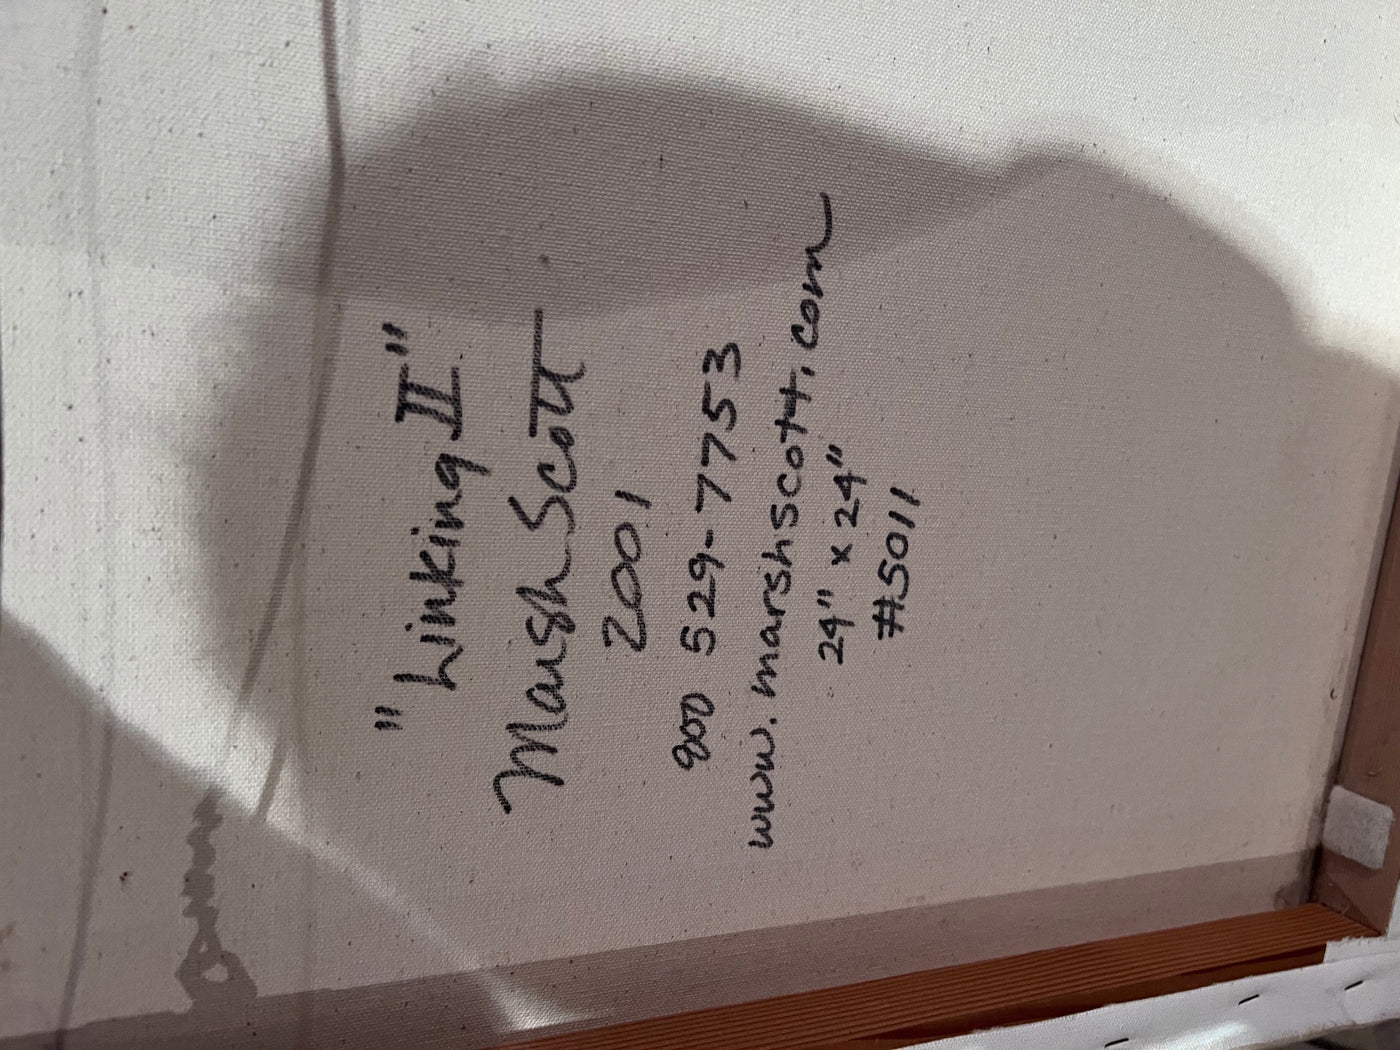 "Linking II"
Marsh Scott
2001
800 529-7753
www.marshscott.com
24" x 24"
#5011